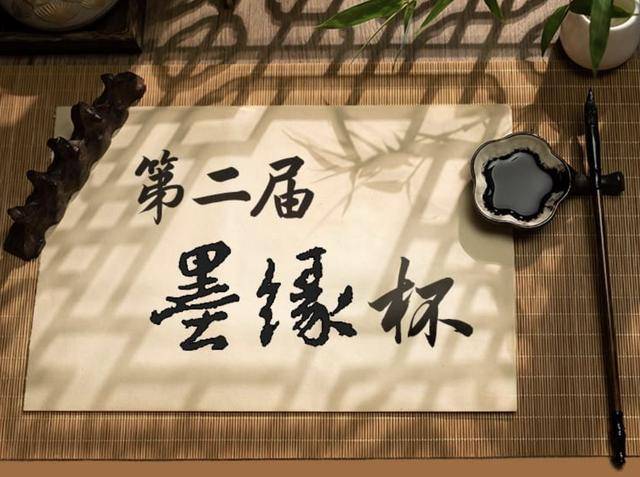 第二届
墨缘杯